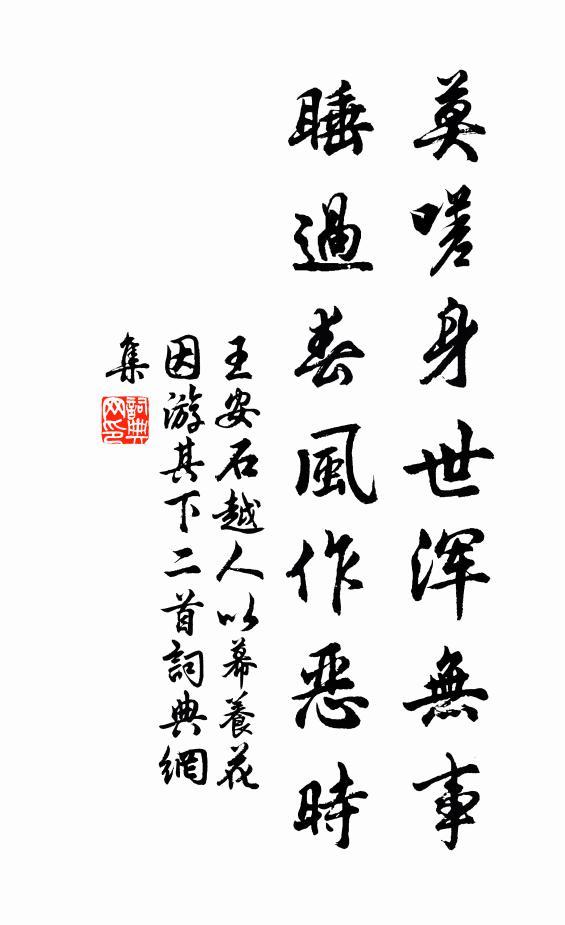 莫嗟身世浑無事
睡過春風作惡時
王安石越人以幕養花
因游其下二首詞典網
集
詞典網印